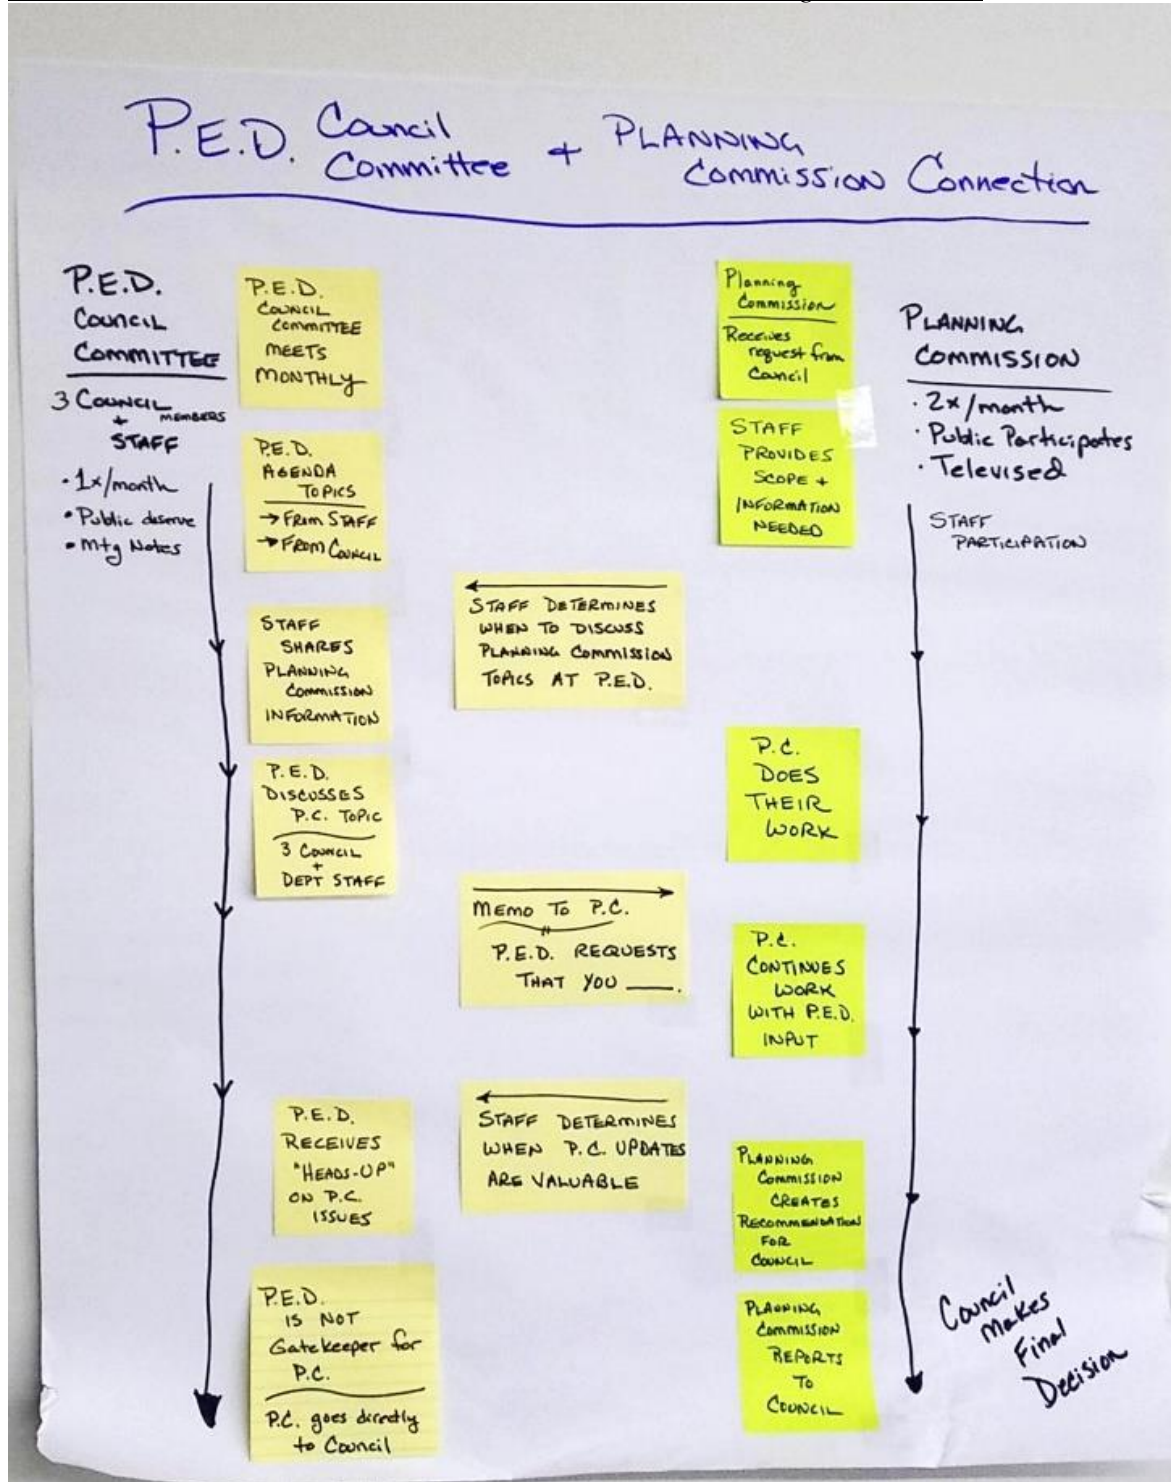 P.E.D. Council Committee + PLANNING COMMISSION Connection
P.E.D.
COUNCIL
COMMITTEE
3 COUNCIL MEMBERS
+
STAFF
• 1x/month
• Public deserve
• Mtg Notes
P.E.D.
COUNCIL
COMMITTEE
MEETS
MONTHLY
P.E.D.
AGENDA
TOPICS
→ FROM STAFF
→ FROM COUNCIL
STAFF
SHARES
PLANNING
COMMISSION
INFORMATION
P.E.D.
DISCUSSES
P.C. TOPIC
3 COUNCIL
+
DEPT STAFF
P.E.D.
RECEIVES
"HEADS-UP"
ON P.C.
ISSUES
P.E.D.
IS NOT
Gatekeeper for
P.C.
P.C. goes directly
to Council
STAFF DETERMINES
WHEN TO DISCUSS
PLANNING COMMISSION
TOPICS AT P.E.D.
MEMO TO P.C.
P.E.D. REQUESTS
THAT YOU ____.
STAFF DETERMINES
WHEN P.C. UPDATES
ARE VALUABLE
Planning
Commission
Receives
request from
Council
STAFF
PROVIDES
SCOPE +
INFORMATION
NEEDED
P.C.
DOES
THEIR
WORK
P.C.
CONTINUES
WORK
WITH P.E.D.
INPUT
PLANNING
COMMISSION
CREATES
RECOMMENDATION
FOR
COUNCIL
PLANNING
COMMISSION
REPORTS
TO
COUNCIL
PLANNING
COMMISSION
• 2x/month
• Public Participates
• Televised
STAFF
PARTICIPATION
Council
Makes
Final
Decision